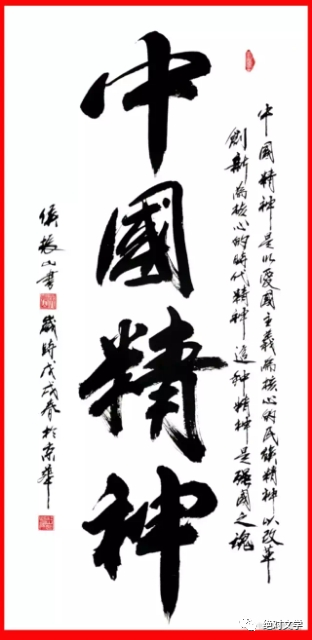 中國精神是以愛國主義為核心的民族精神以改革
創新為核心的時代精神這种精神是强國之魂
中國精神
侯振山書
歲時戊戌春於京華
绝对文学